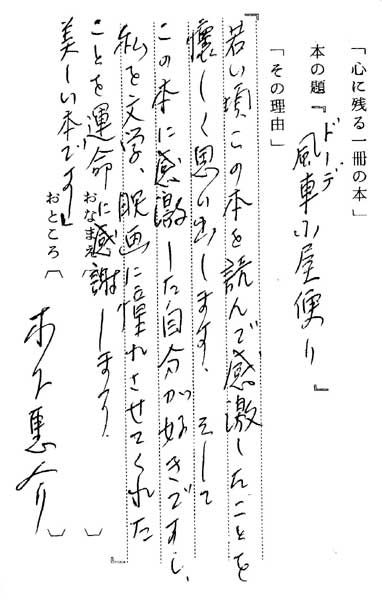 「心に残る一冊の本」
本の題『ドーデ 風車小屋便り』
「その理由」
『若い頃この本を読んで感激したことを
懐しく思い出します。そして
この本に感激した自分が好きですし、
私を文学、映画に憧れさせてくれた
ことを運命に感謝します。
美しい本です』
おなまえ〔 〕
おところ〔 〕
木下惠介